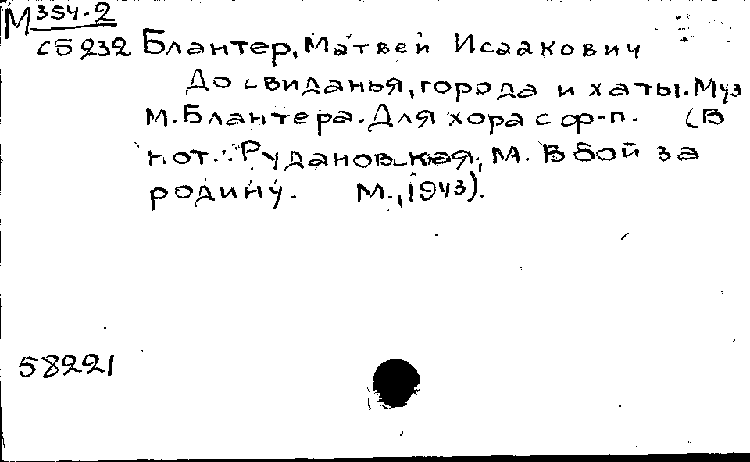 М 354-2
сб 232 Блантер, Матвей Исаакович
До свиданья, города и хаты. Муз
М. Блантера. Для хора с ф-п. (В
нот.: Рудановская, М. В бой за
родину. М., 1943).
58221